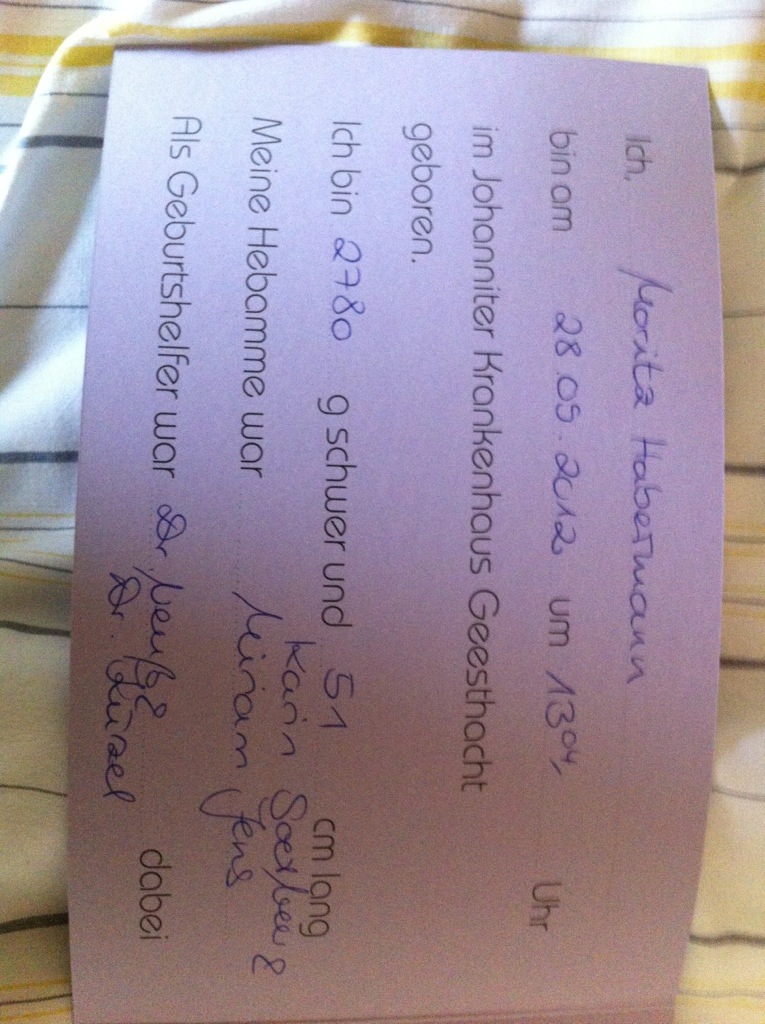 Ich, Moritz Habermann
bin am 28.05.2012 um 13 04, Uhr
im Johanniter Krankenhaus Geesthacht
geboren.
Ich bin 2780 g schwer und 51 cm lang
Karin &
Meine Hebamme war Miriam Jens
Als Geburtshelfer war Dr. & dabei
Dr.